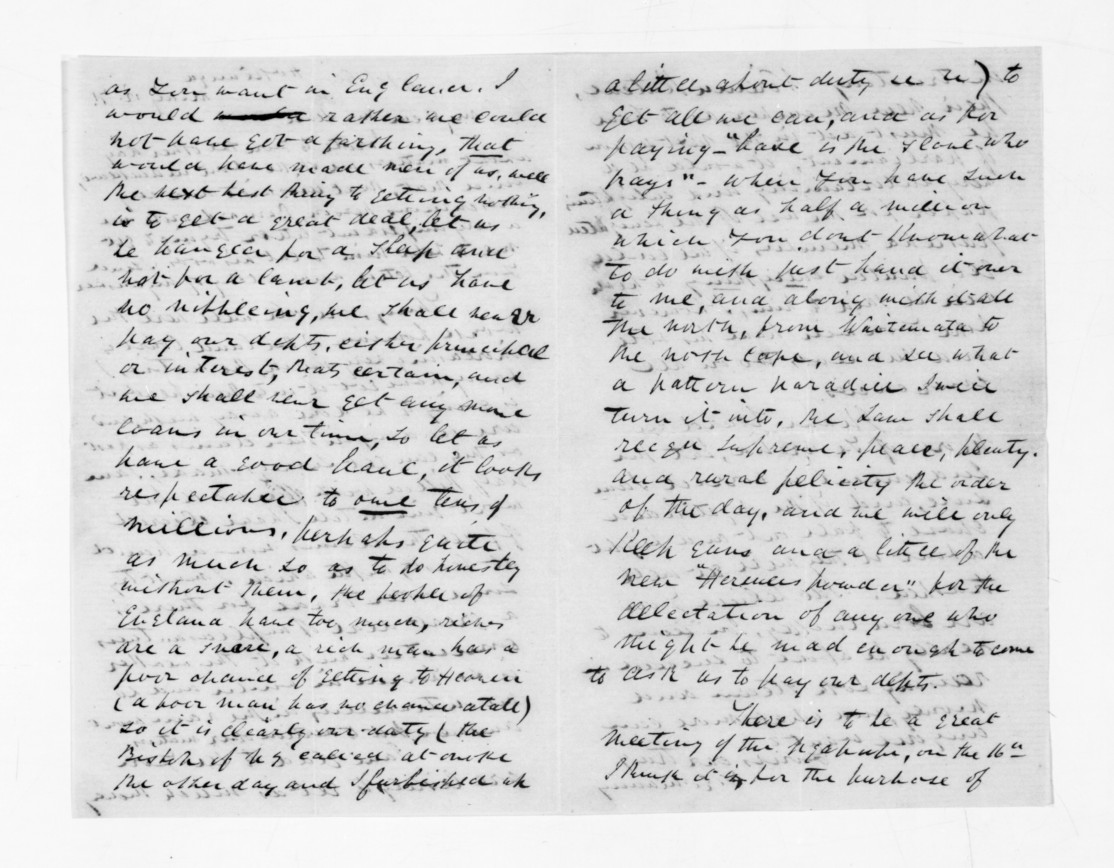 as you want in England. I
would rather we could
not have got a farthing, that
would have made men of us, well
the next best thing to getting nothing,
is to get a great deal, let us
be hanged for a sheep and
not for a lamb, let us have
no nibbleing, we shall never
pay our debts, either principal
or interest, thats certain, and
we shall never get any more
loans in our time, so let us
have a good haul, it looks
respectable to owe tens of
millions, perhaps quite
as much so as to do honestly
without them, the people of
England have too much, riches
are a snare, a rich man has a
poor chance of getting to Heaven
(a poor man has no chance at all)
so it is clearly our duty (the
Bishop of N Z called at
the other day and I furbished up
a little about duty &c &c) to
get all we can, and as for
paying - "base is the slave who
pays" - when you have such
a thing as half a million
which you dont know what
to do with just hand it over
to me, and along with it all
the north, from Waitemata to
the north cape, and see what
a pattern paradise I will
turn it into, the Law shall
reign supreme, peace, plenty.
and rural felicity the order
of the day, and we will only
keep guns and a little of the
new "Hercules powder" for the
delectation of any one who
might be mad enough to come
to ask us to pay our debts.
There is to be a great
meeting of the Ngapuhi, on the 16th
I think it is, for the purpose of